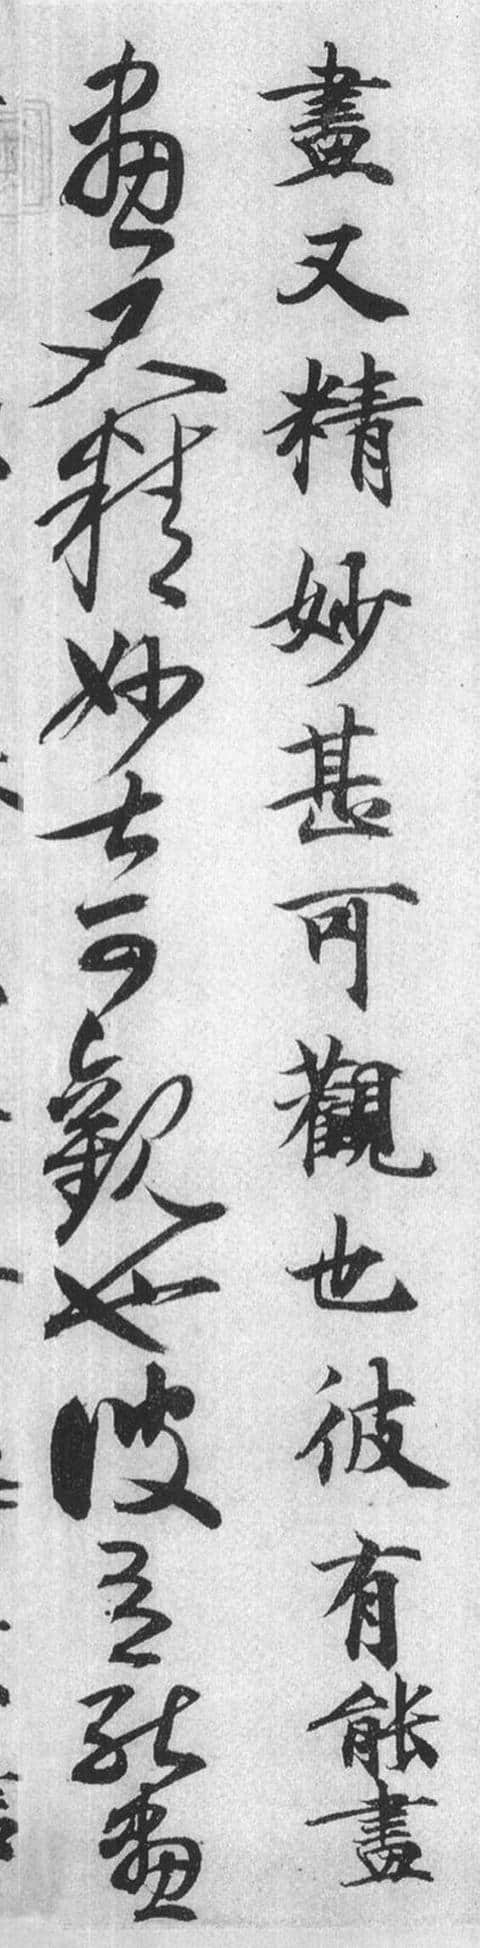 畫又精妙甚可觀也彼有能畫
畫又精妙甚可觀也彼有能畫